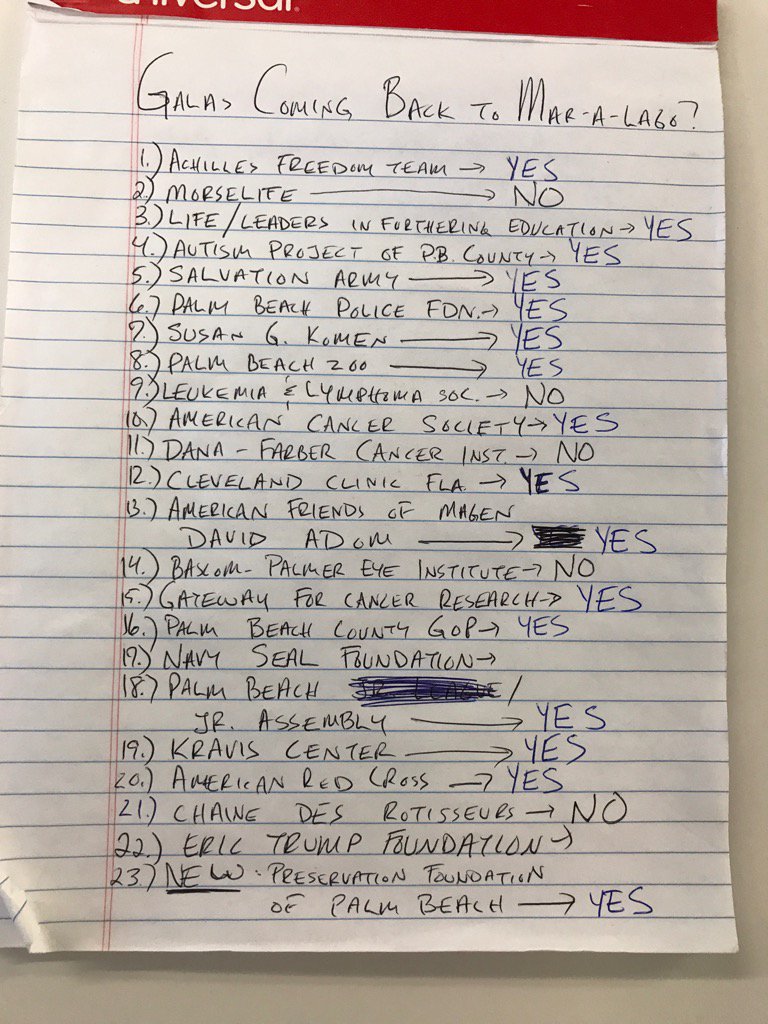 universal
GALAS COMING BACK TO MAR-A-LAGO?
1.) ACHILLES FREEDOM TEAM → YES
2.) MORSELIFE → NO
3.) LIFE/LEADERS IN FURTHERING EDUCATION → YES
4.) AUTISM PROJECT OF P.B. COUNTY → YES
5.) SALVATION ARMY → YES
6.) PALM BEACH POLICE FDN. → YES
7.) SUSAN G. KOMEN → YES
8.) PALM BEACH ZOO → YES
9.) LEUKEMIA & LYMPHOMA SOC. → NO
10.) AMERICAN CANCER SOCIETY → YES
11.) DANA-FARBER CANCER INST. → NO
12.) CLEVELAND CLINIC FLA. → YES
13.) AMERICAN FRIENDS OF MAGEN
DAVID ADOM → YES
14.) BASCOM-PALMER EYE INSTITUTE → NO
15.) GATEWAY FOR CANCER RESEARCH → YES
16.) PALM BEACH COUNTY GOP → YES
17.) NAVY SEAL FOUNDATION →
18.) PALM BEACH JR. LEAGUE/
JR. ASSEMBLY → YES
19.) KRAVIS CENTER → YES
20.) AMERICAN RED CROSS → YES
21.) CHAINE DES ROTISSEURS → NO
22.) ERIC TRUMP FOUNDATION →
23.) NEW · PRESERVATION FOUNDATION
OF PALM BEACH → YES